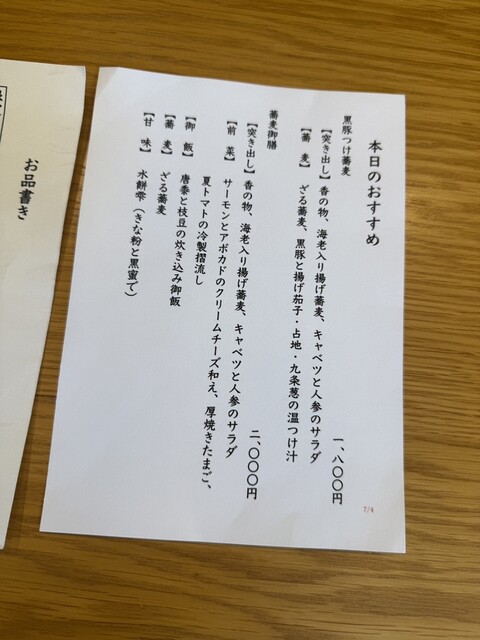 本日のおすすめ
黒豚つけ蕎麦 一、八〇〇円
【突き出し】香の物、海老入り揚げ蕎麦、キャベツと人参のサラダ
【蕎 麦】ざる蕎麦、黒豚と揚げ茄子・占地・九条葱の温つけ汁
蕎麦御膳 二、〇〇〇円
【突き出し】香の物、海老入り揚げ蕎麦、キャベツと人参のサラダ
【前 菜】サーモンとアボカドのクリームチーズ和え、厚焼きたまご、
夏トマトの冷製摺流し
【御 飯】唐黍と枝豆の炊き込み御飯
【蕎 麦】ざる蕎麦
【甘 味】水餅雫（きな粉と黒蜜で）
7/4
お品書き